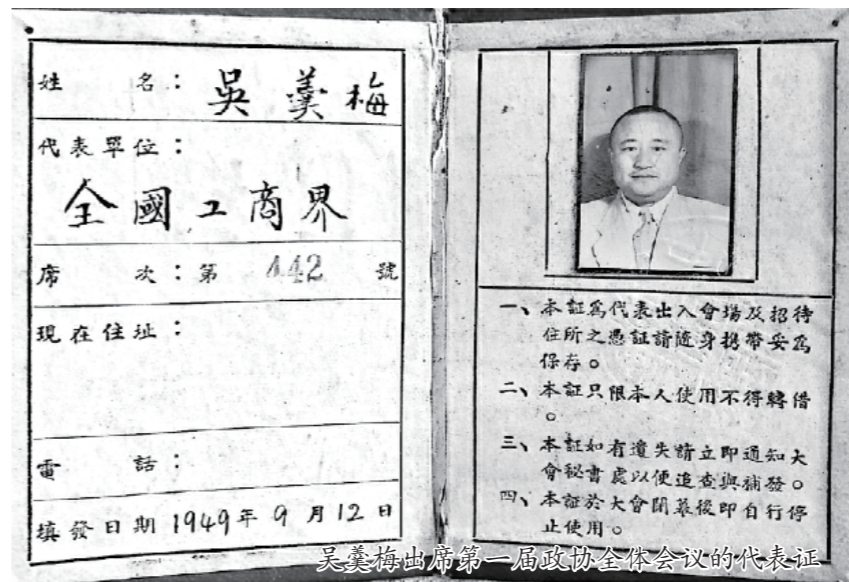 姓名：吳羹梅
代表單位：
全國工商界
席次：第442號
現在住址：
電話：
填發日期1949年9月12日
一、本証為代表出入會場及招待
住所之憑証請隨身携帶妥為
保存。
二、本証只限本人使用不得轉借
。
三、本証如有遺失請立即通知大
會秘書處以便追查與補發。
四、本証於大會閉幕後即自行停
止使用。
吴羹梅出席第一届政协全体会议的代表证